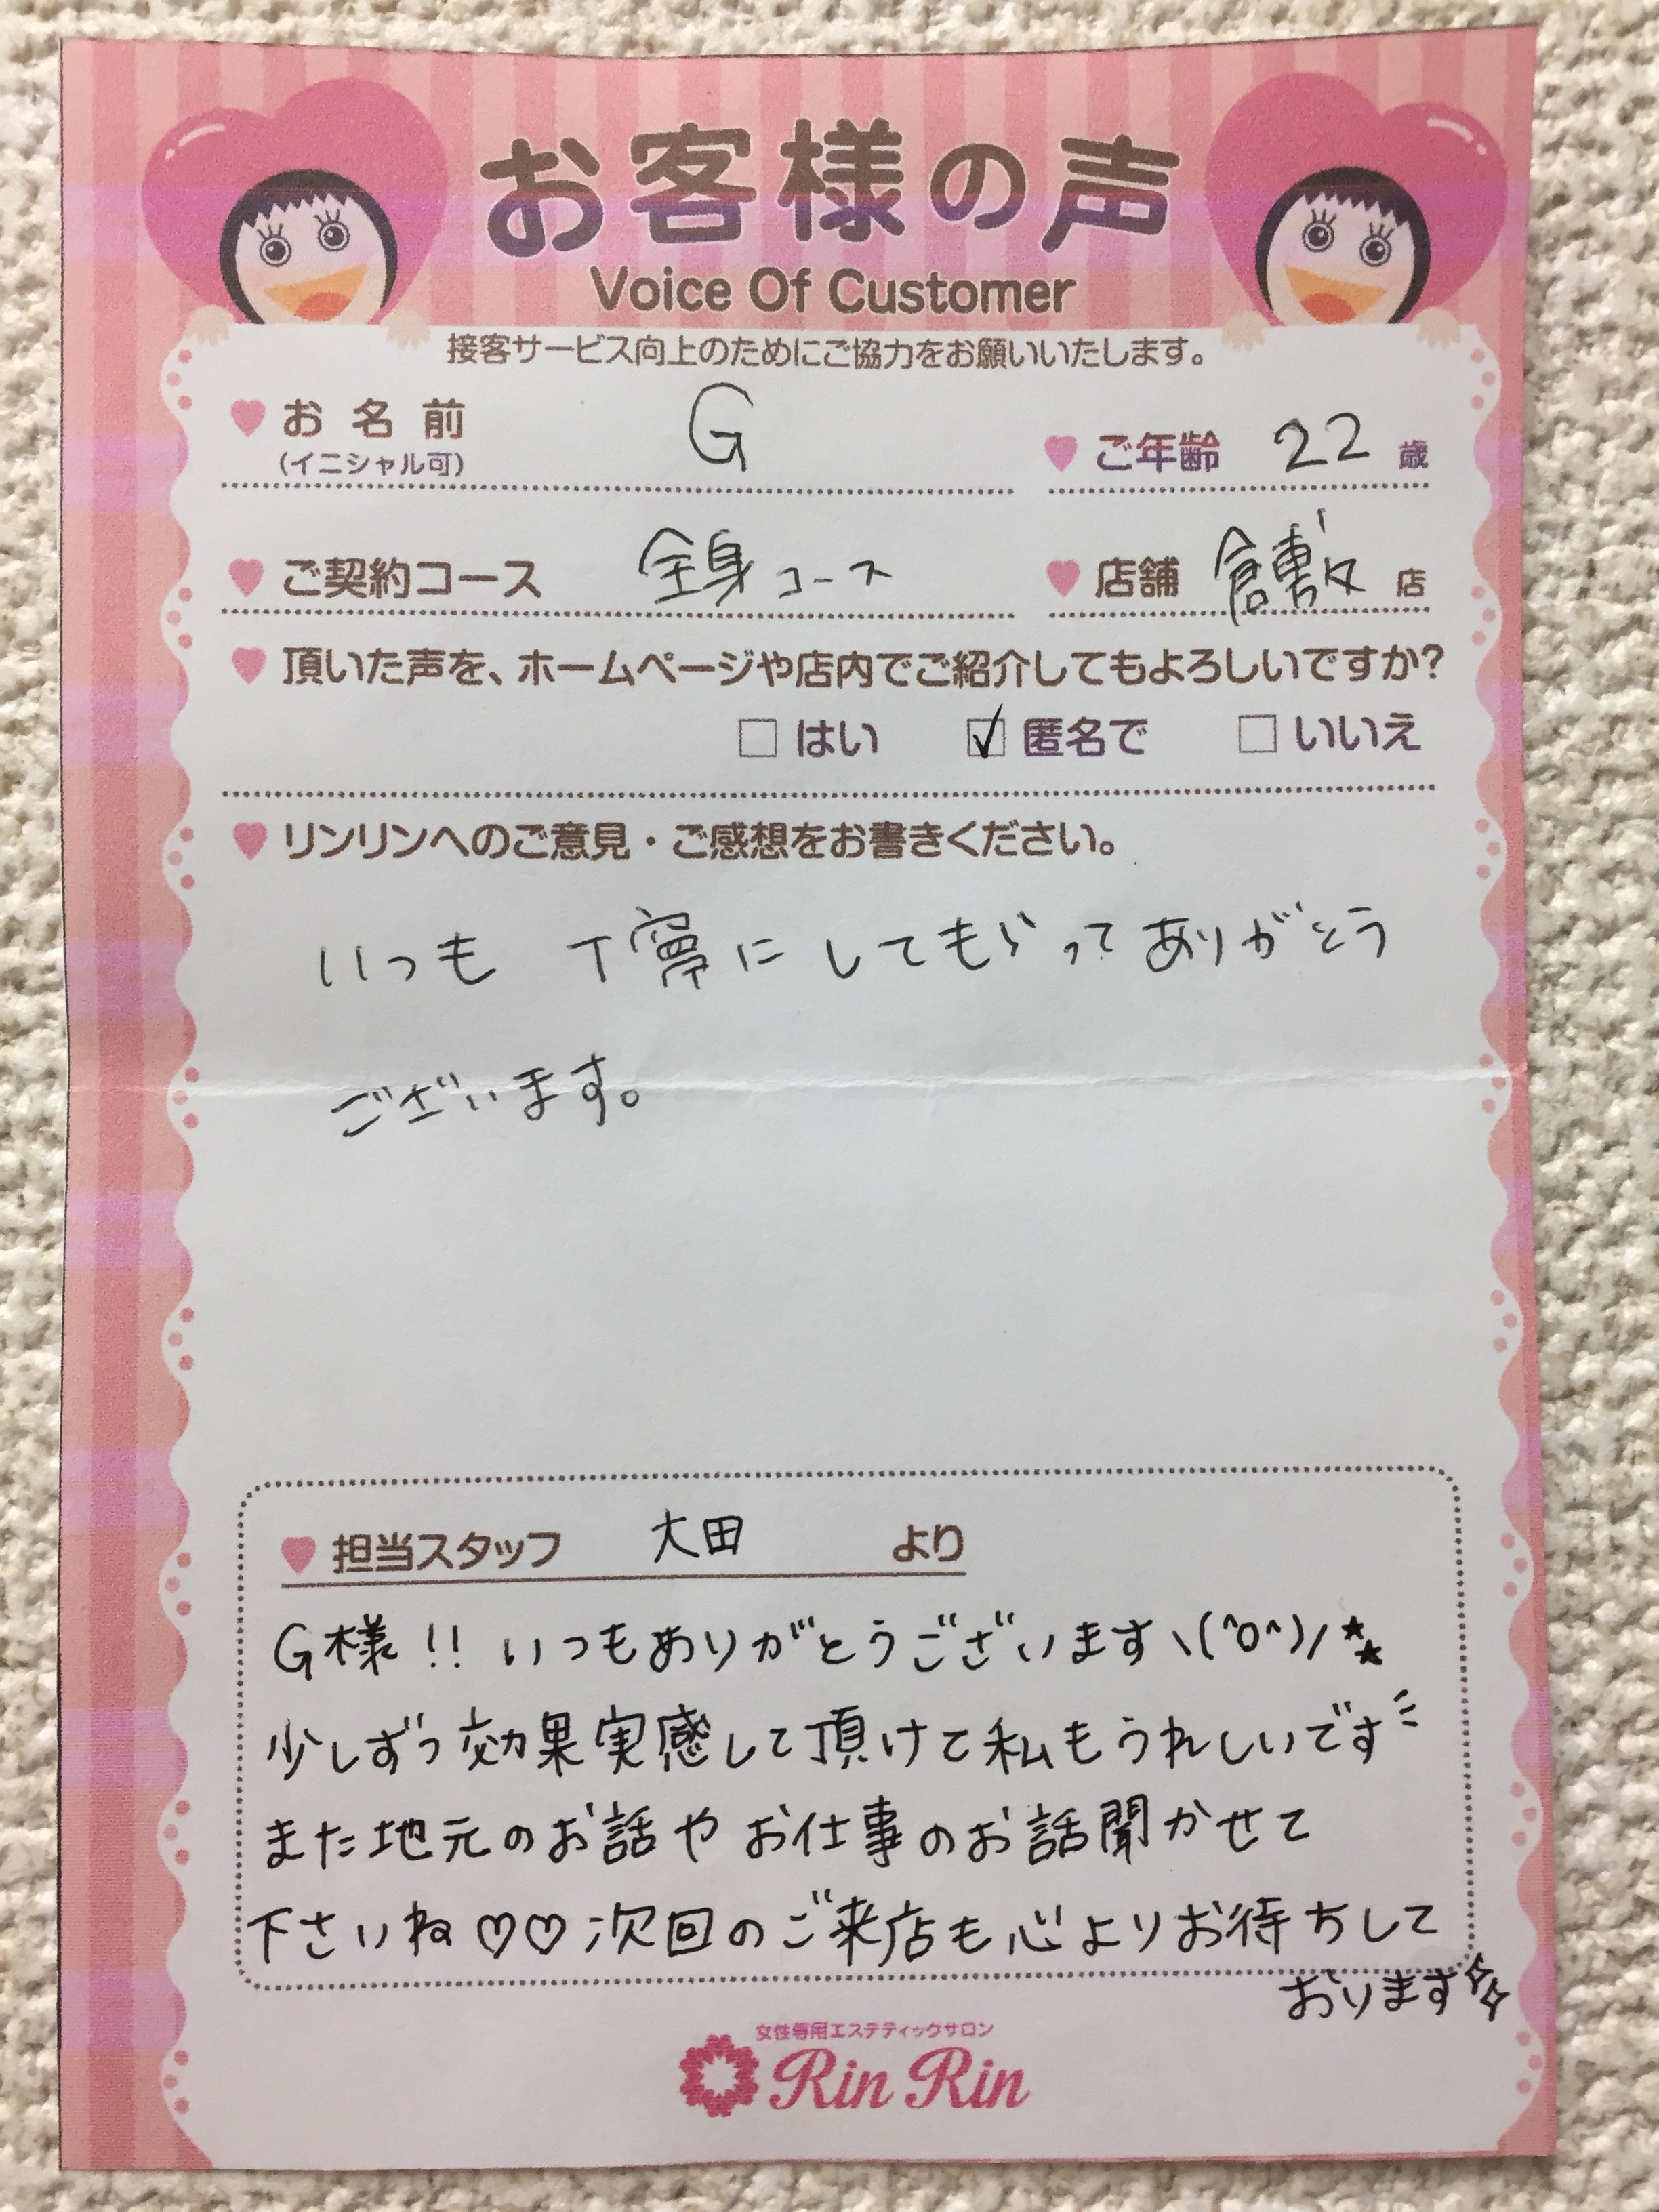 お客様の声
Voice Of Customer
接客サービス向上のためにご協力をお願いいたします。
お名前 G ご年齢 22 歳
(イニシャル可)
ご契約コース 全身コース 店舗 倉敷 店
頂いた声を、ホームページや店内でご紹介してもよろしいですか?
□はい ☑匿名で □いいえ
リンリンへのご意見・ご感想をお書きください。
いつも 丁寧にしてもらってありがとう
ございます。
担当スタッフ 大田 より
G様!! いつもありがとうございますヽ(^o^)/★★
少しずつ効果実感して頂けて私もうれしいです
また地元のお話や お仕事のお話聞かせて
下さいね♡♡次回のご来店も心よりお待ちして
おります✧✧
女性専用エステティックサロン
Rin Rin